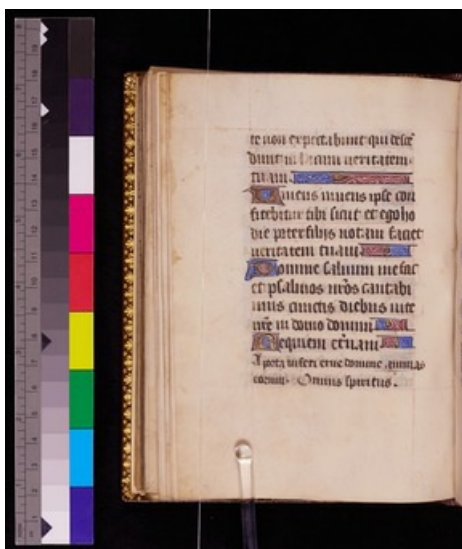 te non expectabunt qui desce
dunt in lacum ueritatem
tuam.
Uiuens uiuens ipse con
fitebitur tibi sicut et ego ho
die pater filijs notam faciet
ueritatem tuam
Domine saluum me fac
et psalmos nr̃os cantabi
mus cunctis diebus uite
nr̃e in domo domini
Requiem et̃nam
A porta inferi erue domine animas
eorum. Omnis spiritus.